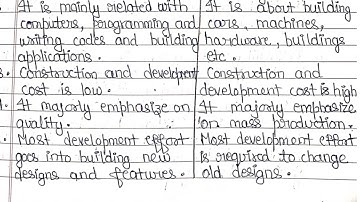 It is mainly related with
computers, programming and
writing codes and building
applications.
It is about building
cars, machines,
hardware, buildings
etc.
3. Construction and development
cost is low.
Construction and
development cost is high
It majorly emphasize on
quality.
It majorly emphasize
on mass production.
Most development effort
goes into building new
designs and features.
Most development effort
is required to change
old designs.